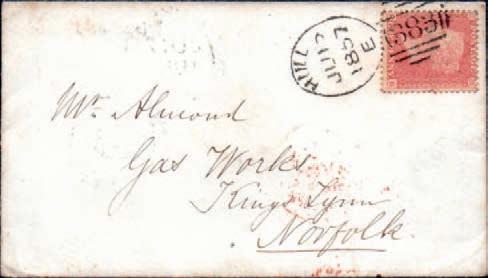 HULL
JU 12
1857
E
383
Mr. Almond
Gas Works
Kings Lynn
Norfolk.